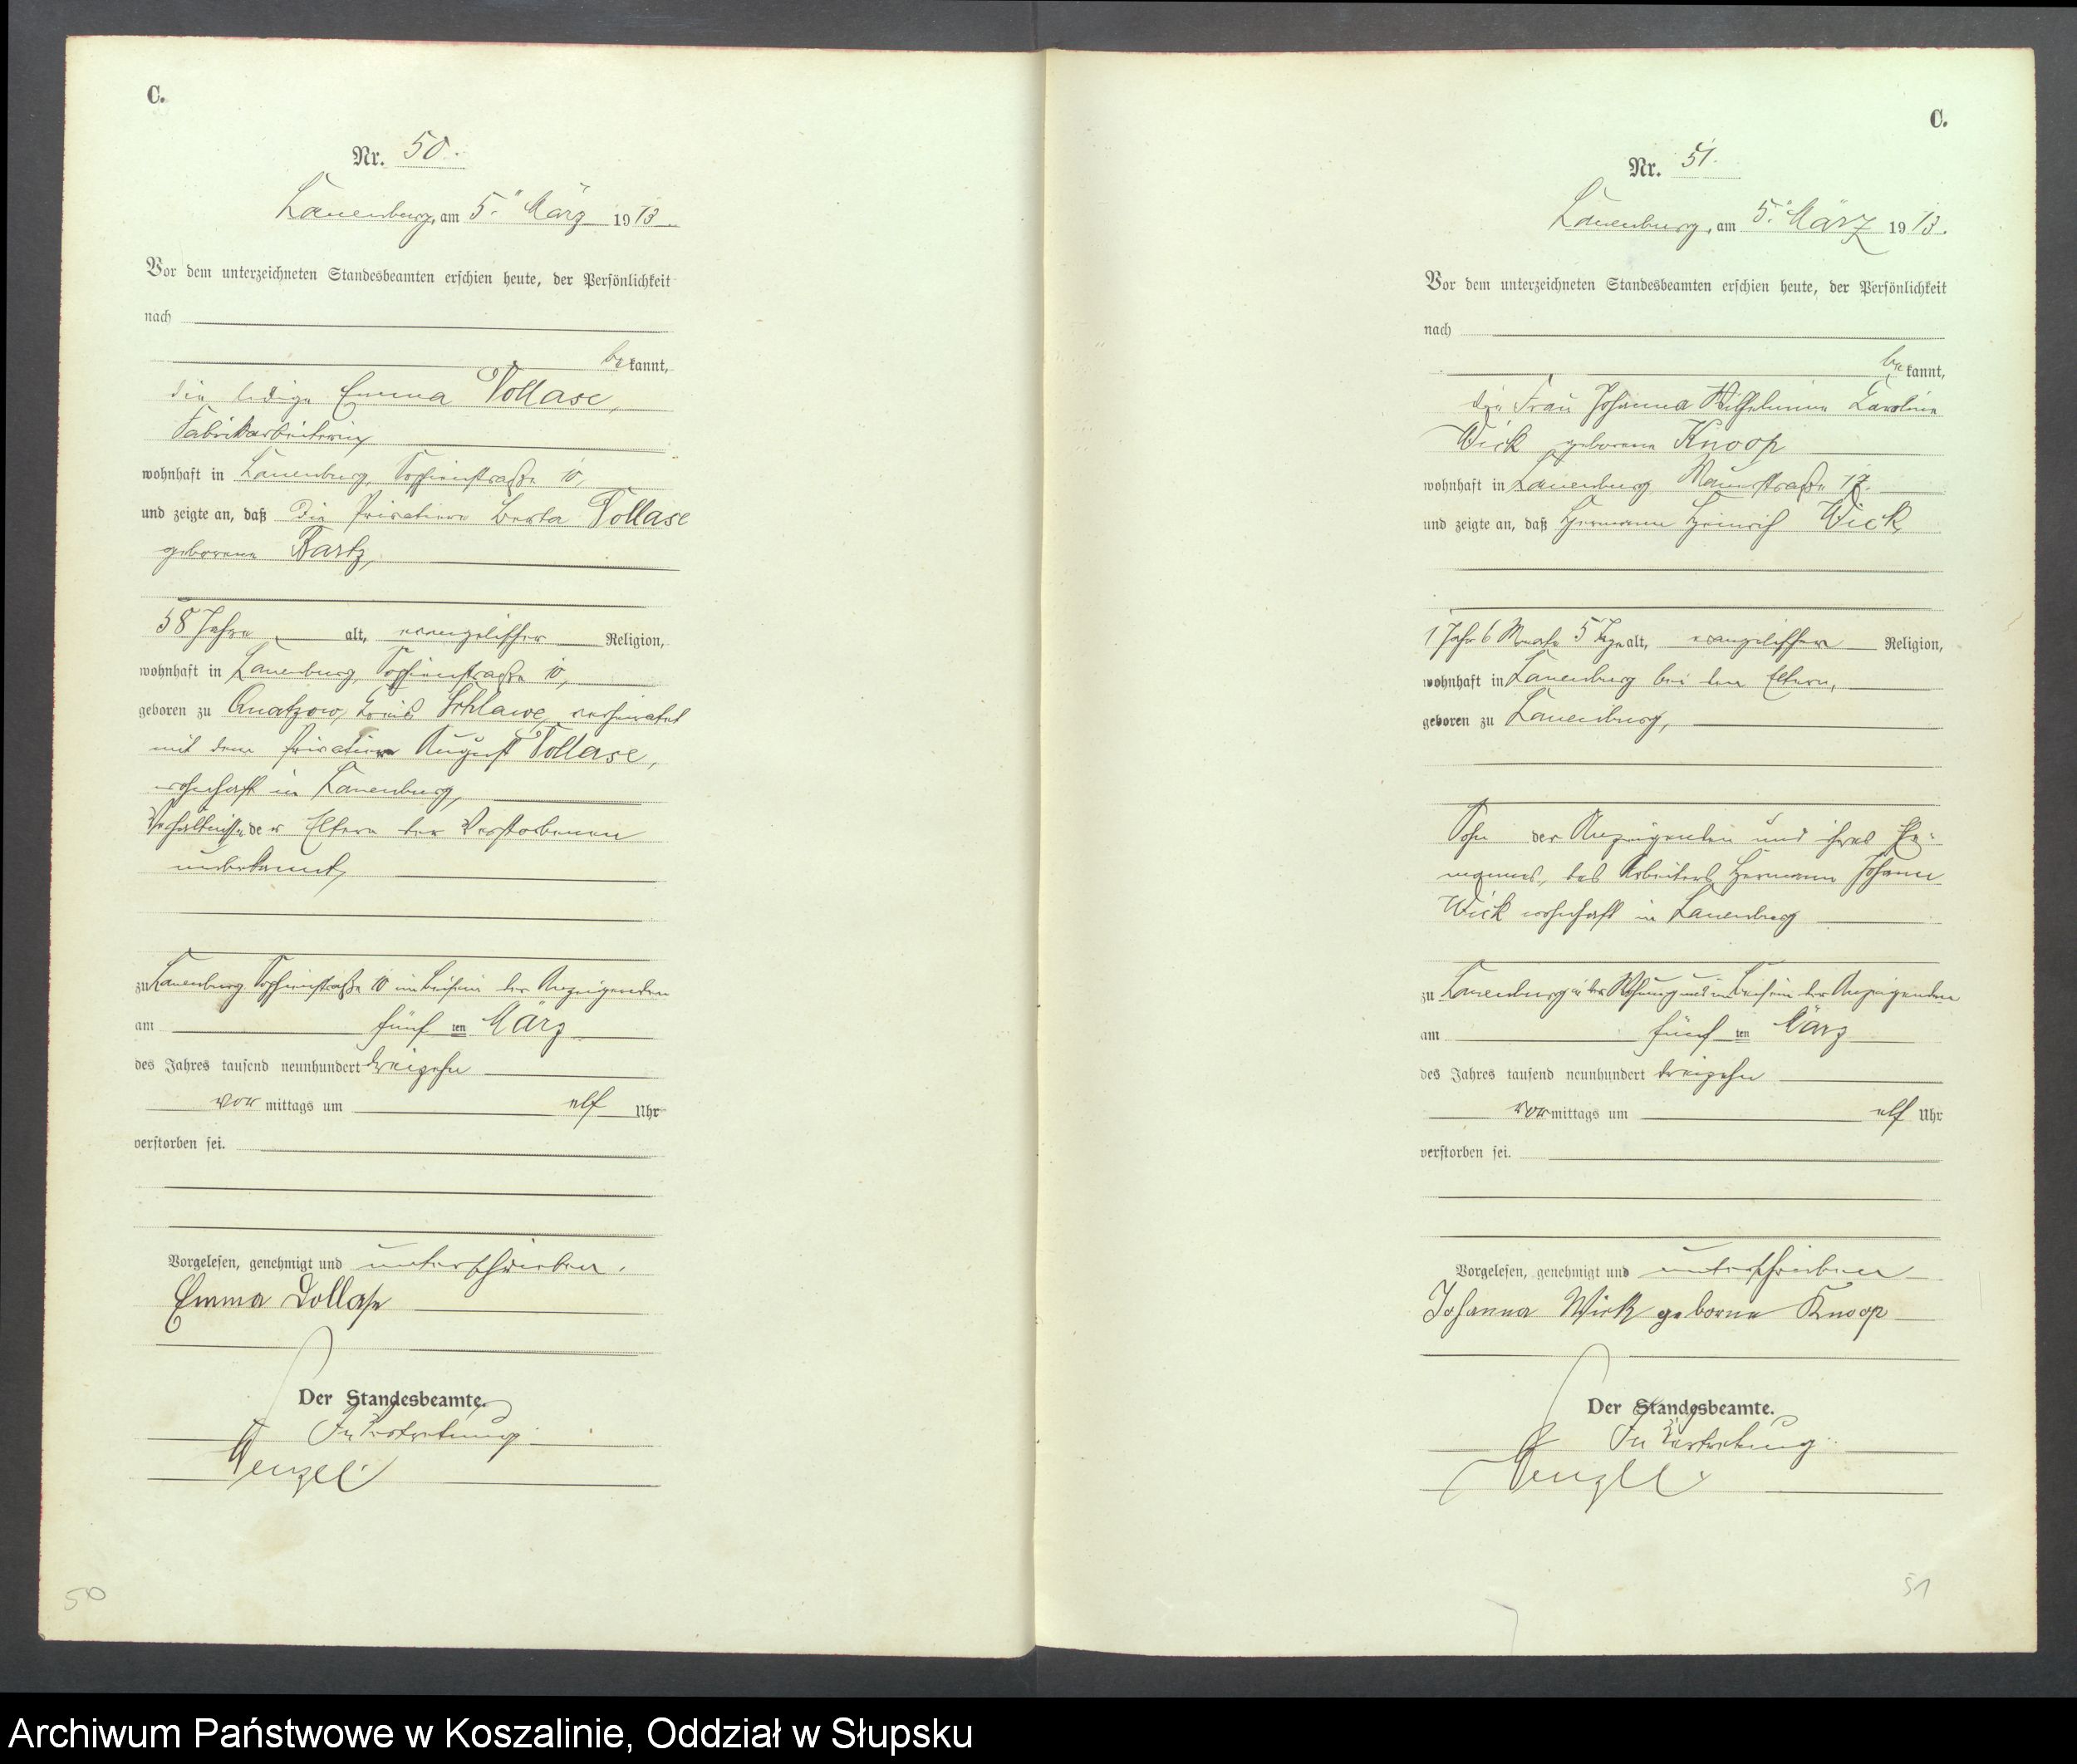 C.
Nr. 50.
Lauenburg, am 5. März 1913.
Vor dem unterzeichneten Standesbeamten erschien heute, der Persönlichkeit
nach
bekannt,
die ledige Emma Dollase,
Fabrikarbeiterin
wohnhaft in Lauenburg, Sophienstraße 10,
und zeigte an, daß die Berta Dollase
geborene Bartz,
58 Jahre alt, evangelischer Religion,
wohnhaft in Lauenburg, Sophienstraße 10,
geboren zu Quatzow, Kreis Schlawe, verheiratet
mit dem August Dollase,
wohnhaft in Lauenburg,
Verhältnisse der Eltern der Verstorbenen
unbekannt,
zu Lauenburg Sophienstraße 10 im Beisein der Anzeigenden
am fünften März
des Jahres tausend neunhundert dreizehn
vormittags um elf Uhr
verstorben sei.
Vorgelesen, genehmigt und unterschrieben.
Emma Dollase
Der Standesbeamte.
In Vertretung
Wenzel
50
C.
Nr. 51.
Lauenburg, am 5. März 1913.
Vor dem unterzeichneten Standesbeamten erschien heute, der Persönlichkeit
nach
bekannt,
die Frau Johanna Wilhelmine Karoline
Wick geborene Knoop
wohnhaft in Lauenburg Mauerstraße
und zeigte an, daß Hermann Heinrich Wick,
1 Jahr 6 Monate 5 Tage alt, evangelischer Religion,
wohnhaft in Lauenburg bei den Eltern,
geboren zu Lauenburg,
Sohn der Anzeigenden und ihres Ehe-
mannes, des Arbeiters Hermann Johann
Wick wohnhaft in Lauenburg
zu Lauenburg in der Wohnung und im Beisein der Anzeigenden
am fünften März
des Jahres tausend neunhundert dreizehn
vormittags um elf Uhr
verstorben sei.
Vorgelesen, genehmigt und unterschrieben
Johanna Wick geborne Knoop
Der Standesbeamte.
In Vertretung
Wenzel
51
Archiwum Państwowe w Koszalinie, Oddział w Słupsku